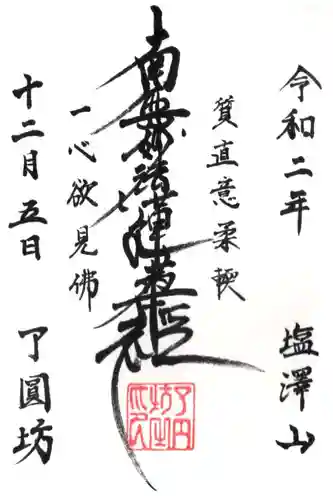 令和二年 塩澤山
質直意柔軟
南無妙法蓮華経
一心欲見佛
十二月五日 了圓坊
了円坊之印